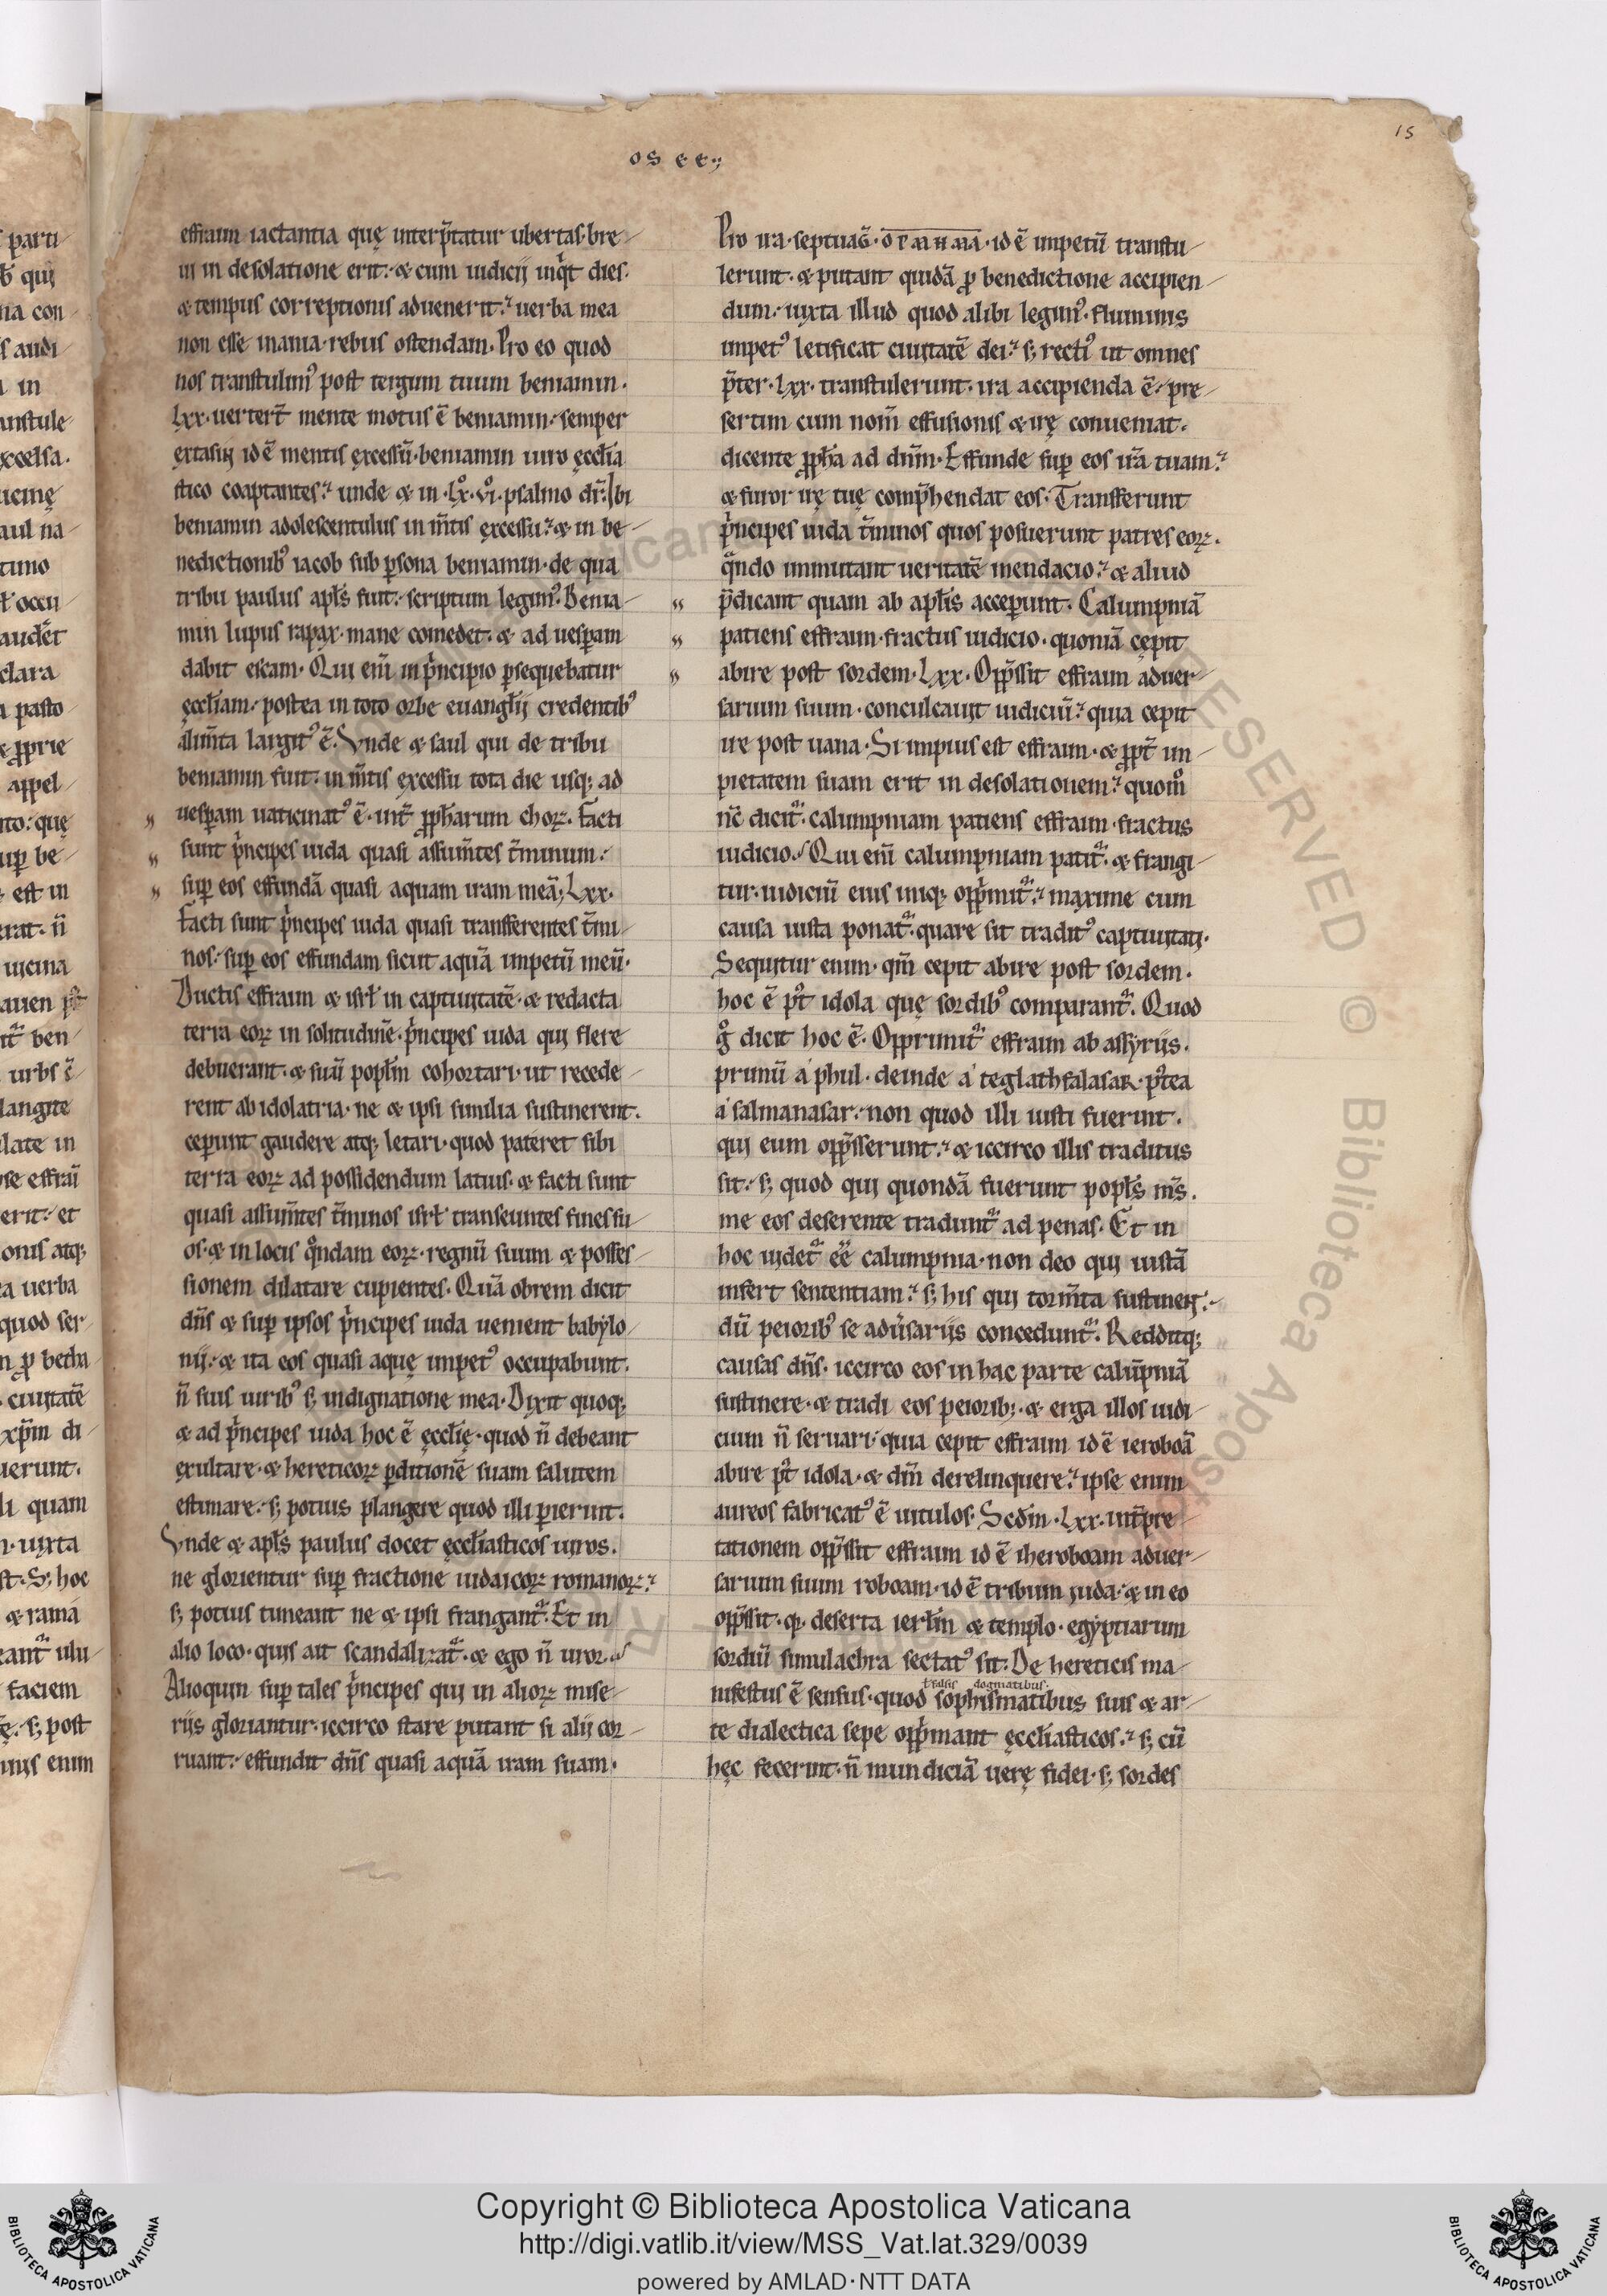 15
OSEE
effraim iactantia quę interp̄tatur ubertas· bre-
ui in desolatione erit: & cum iudicij inq̇t dies·
& tempus correptionis aduenerit: uerba mea
non esse inania· rebus ostendam. Pro eo quod
nos transtulim᷒ post tergum tuum beniamin·
Lxx· uerteȓt mente motus ē beniamin· semper
extasin id ē mentis ęxcessū· beniamin uiro ęccłia
stico coaptantes: unde & in· Lx̊· vı̊· psalmo dr̄: Ibi
beniamin adolescentulus in m̄tis ęxcessu: & in be-
nedictionib᷒ iacob sub ꝑsona beniamin· de qua
tribu paulus apłs fuit: scriptum legim᷒. Benia-
min lupus rapax· mane comedet· & ad uesꝑam
dabit escam· Qui eni̅ in p̓ncipio ꝑsequebatur
ęccłiam· postea in toto orbe euangłij credentib᷒
alim̄ta largit᷒ ē. Vnde & saul qui de tribu
beniamin fuit: in m̄tis ęxcessu tota die usq; ad
uesꝑam uaticinat᷒ ē· int̄ ꝓpħarum choꝝ· Facti
sunt p̓ncipes iuda quasi assum̄tes t̄minum:
suꝑ eos effundā quasi aquam iram meā; Lxx·
Facti sunt p̓ncipes iuda quasi transferentes t̄mi-
nos: suꝑ eos effundam sicut aquā impetū meū·
Ductis effraim & isrł in captiuitatē· & redacta
terra eoꝝ in solitudinē· p̓ncipes iuda qui flere
debuerant· & suū popłm cohortari· ut recede-
rent ab idolatria· ne & ipsi similia sustinerent·
ceꝑunt gaudere atq; letari· quod pateret sibi
terra eoꝝ ad possidendum latius· & facti sunt
quasi assum̄tes t̄minos isrł transeuntes fines su-
os· & in locis q̊ndam eoꝝ· regnū suum & posses-
sionem dilatare cupientes· Quā obrem dicit
dn̄s & suꝑ ipsos p̓ncipes iuda uenient babylo-
nij: & ita eos quasi aquę impet᷒ occupabunt·
n̄ suis uirib᷒ s; indignatione mea· Dixit quoq;
& ad p̓ncipes iuda hoc ē ęccłię· quod n̄ debeant
ęxultare· & hereticoꝝ ꝑditionē suam salutem
estimare: s; potius plangere quod illi ꝑierint·
Vnde & apłs paulus docet ęccłiasticos uiros·
ne glorientur suꝑ fractione iudaicoꝝ romanoꝝ:
s; potius timeant ne & ipsi frangant᷑· Et in
alio loco· quis ait scandalizat᷑· & ego n̄ uror·
Alioquin suꝑ tales p̓ncipes qui in alioꝝ mise-
riis gloriantur· iccirco stare putant si alij cor-
ruant: effundit dn̄s quasi aquā iram suam·
Pro ira· septuag̃· ὁρμημα· id ē impetū transtu-
lerunt· & putant quidā ꝓ benedictione accipien-
dum: iuxta illud quod alibi legim᷒· fluminis
impet᷒ letificat ciuitatē dei: s; recti᷒ ut omnes
p̄ter· Lxx· transtulerunt· ira accipienda ē: pre-
sertim cum nom̄ effusionis & irę conueniat·
dicente ꝓpħa ad dn̄m· Effunde suꝑ eos irā tuam:
& furor irę tuę comp̄hendat eos· Transferunt
p̓ncipes iuda t̄minos quos posuerunt patres eoꝝ·
q̃ndo immutant ueritatē mendacio: & aliud
p̄dicant quam ab apłis acceꝑunt· Calumpniā
patiens effraim· fractus iudicio· quoniā cępit
abire post sordem· Lxx· Opp̄ssit effraim aduer-
sarium suum· conculcauit iudiciū: quia cepit
ire post uana· Si impius est effraim· & ꝓpt̄ im-
pietatem suam erit in desolationem: quom̊
nc̄ dicit᷑· calumpniam patiens effraim· fractus
iudicio· Qui eni̅ calumpniam patit᷑· & frangi-
tur· iudiciū eius iniq; opp̓mit᷑: maxime cum
causa iusta ponat᷑· quare sit tradit᷒ captiuitati·
Sequitur enim· qm̄ cepit abire post sordem·
hoc ē p̄t idola quę sordib᷒ comparant᷑· Quod
g̊ dicit hoc ē· Opprimit᷑ effraim ab assyriis·
primū a phul· deinde a teglathfalasar· p̄tea
a salmanasar: non quod illi iusti fuerint·
qui eum opp̄sserunt: & iccirco illis traditus
sit: s; quod qui quondā fuerunt popłs m̄s·
me eos deserente tradunt᷑ ad penas· Et in
hoc uidet᷑ eē calumpnia· non deo qui iustā
infert sententiam: s; his qui torm̄ta sustinent·
dū peiorib᷒ se adūsariis concedunt᷑· Redditq;
causas dn̄s· iccirco eos in hac parte calūpniā
sustinere· & tradi eos peiorib;· & erga illos iudi-
cium n̄ seruari· quia cepit effraim id ē ieroboā
abire p̄t idola· & dn̄m derelinquere: ipse enim
aureos fabricat᷒ ē uitulos· Scdm· Lxx· int̄pre-
tationem opp̄ssit effraim id ē iheroboam aduer-
sarium suum roboam· id ē tribum iuda: & in eo
opp̄ssit· q; deserta ierłm & templo· egyptiarum
sordiū simulachra sectat᷒ sit· De hereticis ma-
ł falsis dogmatibus·
nifestus ē sensus· quod sophismatibus suis & ar-
te dialectica sepe opp̓mant ęccłiasticos: s; cū
hęc fecerint· n̄ mundiciā uerę fidei· s; sordes
Copyright © Biblioteca Apostolica Vaticana
http://digi.vatlib.it/view/MSS_Vat.lat.329/0039
powered by AMLAD·NTT DATA
BIBLIOTECA APOSTOLICA VATICANA
BIBLIOTECA APOSTOLICA VATICANA